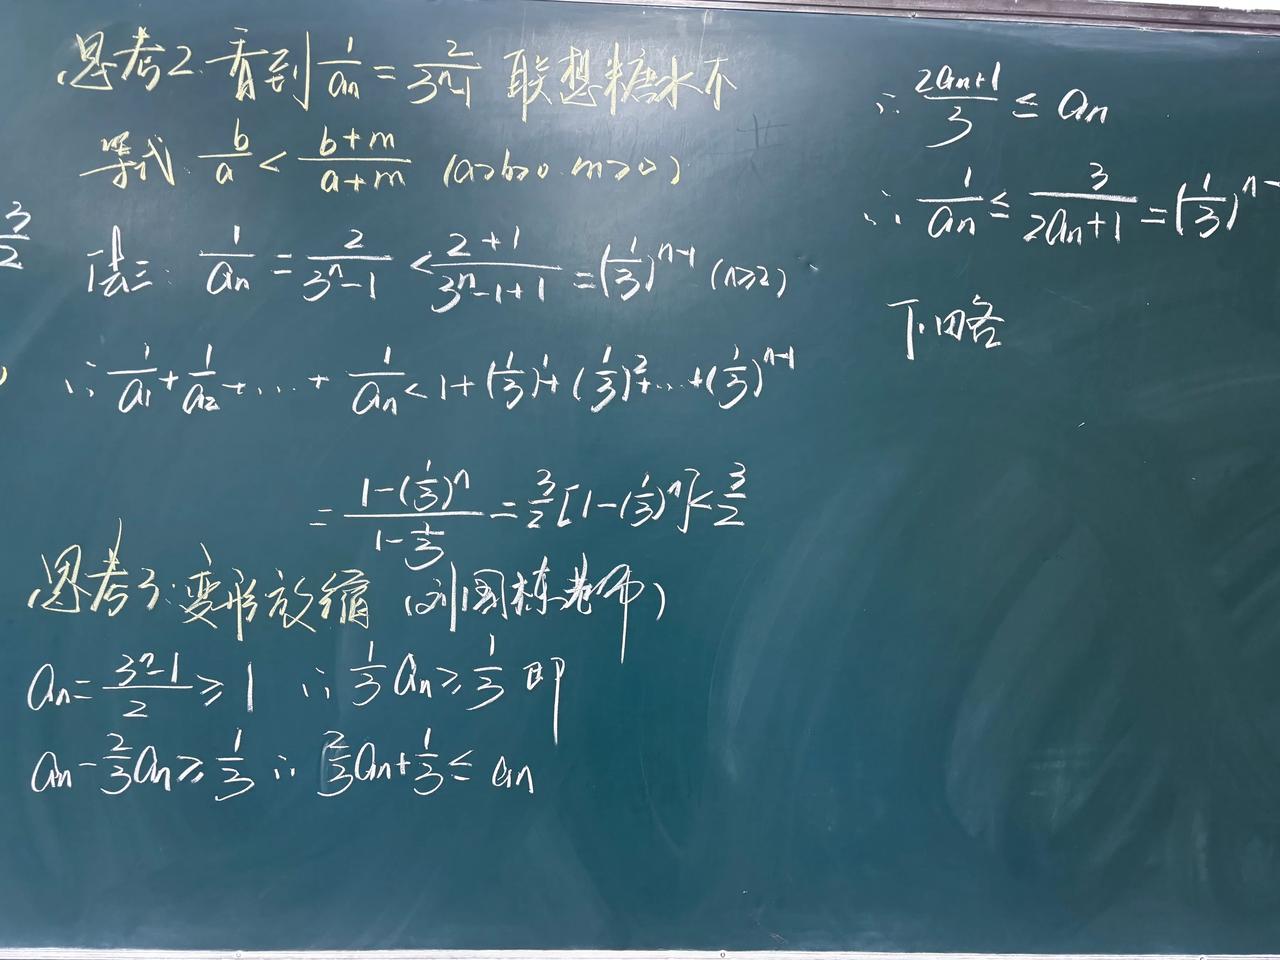 思考2.看到 1/an = 2/(3^n-1) 联想糖水不
等式 b/a < (b+m)/(a+m) (a>b>0 m>0)
3/2
法三: 1/an = 2/(3^n-1) < (2+1)/(3^n-1+1) = (1/3)^(n-1) (n≥2)
∴ 1/a1 + 1/a2 + ... + 1/an < 1 + (1/3)^1 + (1/3)^2 + ... + (1/3)^(n-1)
= (1-(1/3)^n)/(1-1/3) = 3/2[1-(1/3)^n] < 3/2
思考3:变形放缩 (刘国栋老师)
an = (3^n-1)/2 ≥ 1 ∴ 1/3 an ≥ 1/3 即
an - 2/3 an ≥ 1/3 ∴ 2/3 an + 1/3 ≤ an
∴ (2an+1)/3 ≤ an
∴ 1/an ≤ 3/(2an+1) = (1/3)^(n-
下略